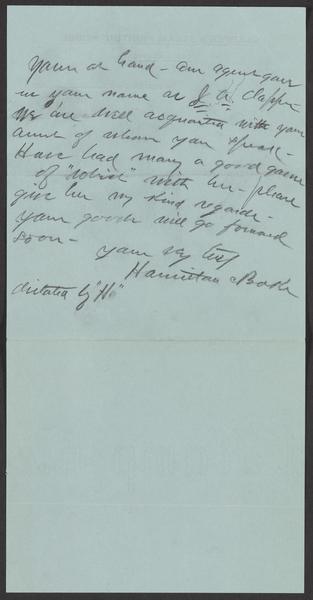 Yours at hand - am agent your
in your name as J. A. Clapp -
We are well acquainted with your
aunt of whom you speak -
Have had many a good game
of "whist" with her - please
give her my kind regards -
Your goods will go forward
soon -
Yours very truly
Hamilton & Book
dictated by "H"